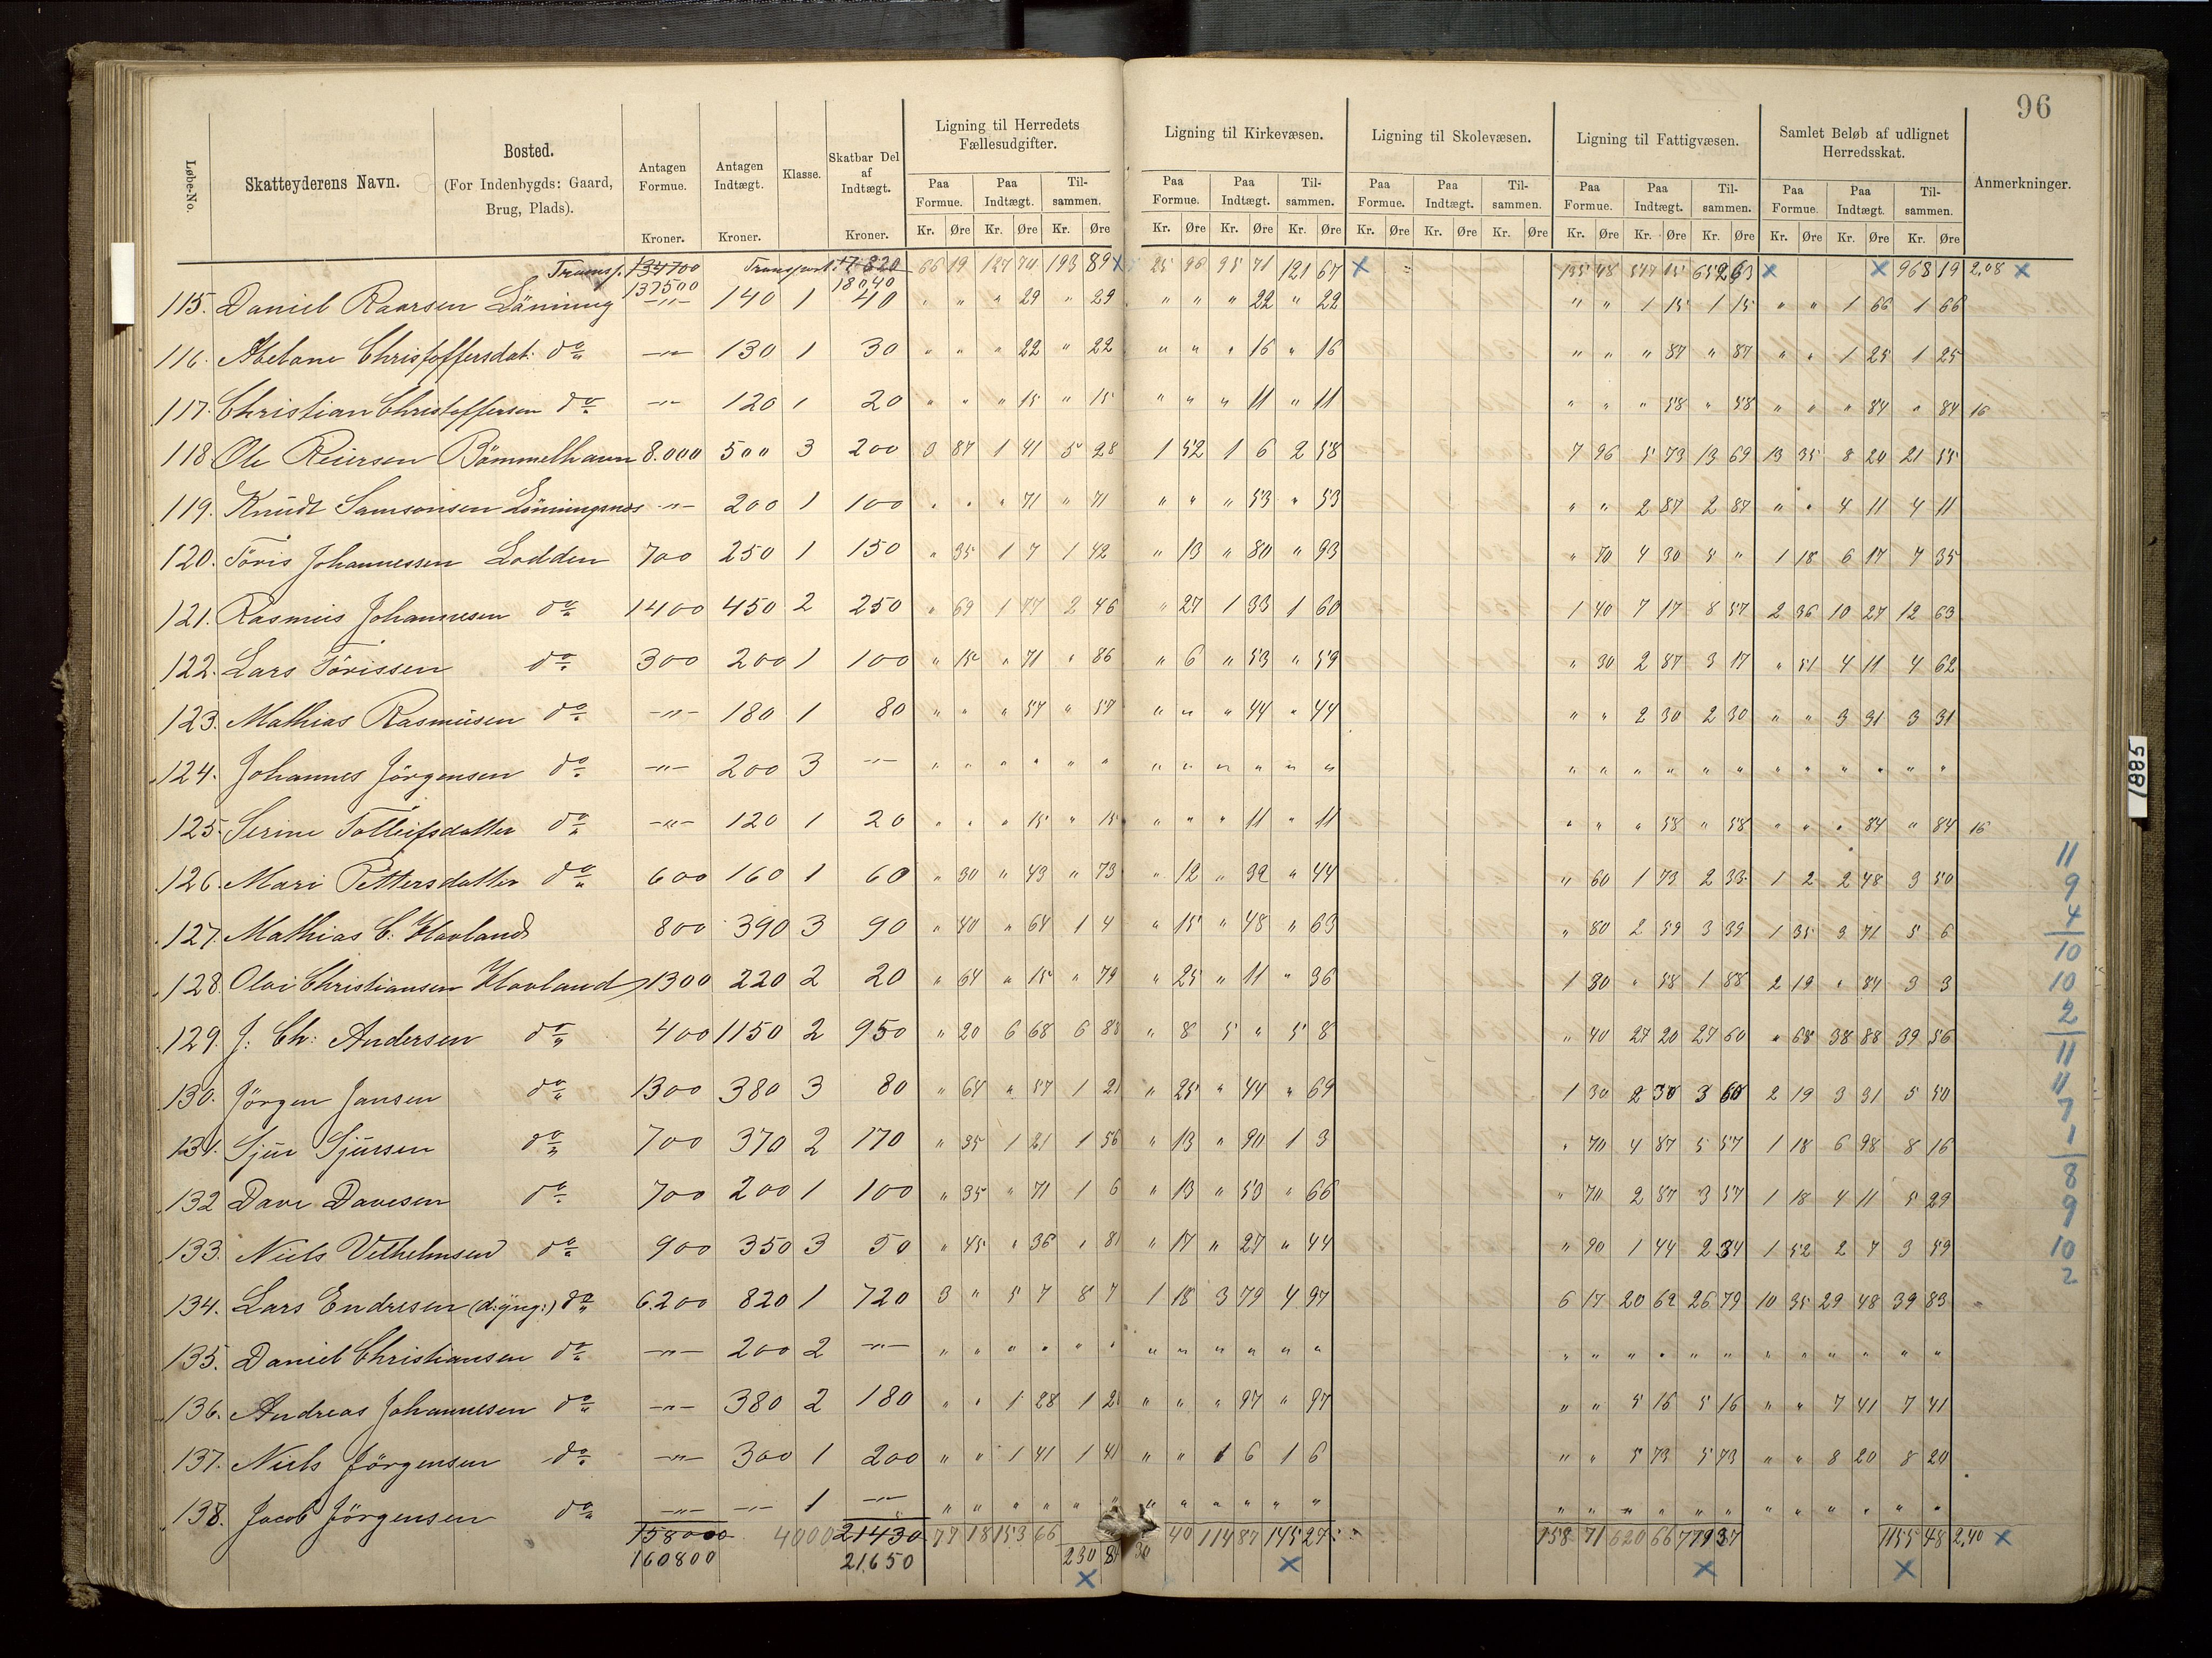 96
Løbe-No.
Skatteyderens Navn.
Bosted.
(For Indenbygds: Gaard,
Brug, Plads).
Antagen
Formue.
Kroner.
Antagen
Indtægt.
Kroner.
Klasse.
Skatbar Del
af
Indtægt.
Kroner.
Ligning til Herredets
Fællesudgifter.
Ligning til Kirkevæsen.
Ligning til Skolevæsen.
Ligning til Fattigvæsen.
Samlet Beløb af udlignet
Herredsskat.
Anmerkninger.
Paa Formue. Paa Indtægt. Til- sammen. Paa Formue. Paa Indtægt. Til- sammen. Paa Formue. Paa Indtægt. Til- sammen. Paa Formue. Paa Indtægt. Til- sammen. Paa Formue. Paa Indtægt. Til- sammen.
Kr. Øre Kr. Øre Kr. Øre Kr. Øre Kr. Øre Kr. Øre Kr. Øre Kr. Øre Kr. Øre Kr. Øre Kr. Øre Kr. Øre Kr. Øre Kr. Øre Kr. Øre
Transp. 134700 Transport: 17820 66 19 127 70 193 89 x 25 96 95 71 121 67 x 135 48 517 15 652 63 x x 968 19 2,08 x
137500 18040
115. Daniel Raarsen Lönning -"- 140 1 40 " " " 29 " 29 " " " 22 " 22 " " 1 15 1 15 " " 1 66 1 66
116. Abelone Christoffersdat: do -"- 130 1 30 " " " 22 " 22 " " " 16 " 16 " " " 87 " 87 " " 1 25 1 25
117. Christian Christoffersen do -"- 120 1 20 " " " 15 " 15 " " " 11 " 11 " " " 58 " 58 " " " 84 " 84 16
118 Ole Reiersen Bömmelhavn 8.000 500 3 200 3 87 1 41 5 28 1 52 1 6 2 58 7 96 5 73 13 69 13 35 8 20 21 55
119. Knudt Samsonsen Lönningsnes -"- 200 1 100 " " " 71 " 71 " " " 53 " 53 " " 2 87 2 87 " " 4 11 4 11
120. Töris Johannessen Lodden 700 250 1 150 " 35 1 7 1 42 " 13 " 80 " 93 " 70 4 30 5 " 1 18 6 17 7 35
121. Rasmus Johannesen do 1400 450 2 250 " 69 1 77 2 46 " 27 1 33 1 60 1 40 7 17 8 57 2 36 10 27 12 63
122. Lars Törissen do 300 200 1 100 " 15 " 71 " 86 " 6 " 53 " 59 " 30 2 87 3 17 " 51 4 11 4 62
123. Mathias Rasmusen do -"- 180 1 80 " " " 57 " 57 " " " 44 " 44 " " 2 30 2 30 " " 3 31 3 31
124. Johannes Jörgensen do -"- 200 3 -"- " " " " " " " " " " " " " " " " " " " " " " " "
125. Serine Tolleifsdatter do -"- 120 1 20 " " " 15 " 15 " " " 11 " 11 " " " 58 " 58 " " " 84 " 84 16
126. Mari Pettersdatter do 600 160 1 60 " 30 " 43 " 73 " 12 " 32 " 44 " 60 1 73 2 33 1 2 2 48 3 50
127. Mathias C. Hovland 800 390 3 90 " 40 " 64 1 4 " 15 " 48 " 63 " 80 2 59 3 39 1 35 3 71 5 6
128. Olai Christiansen Hovland 1300 220 2 20 " 64 " 15 " 79 " 25 " 11 " 36 1 30 " 58 1 88 2 19 " 84 3 3
129. J: Ch: Andersen do 400 1150 2 950 " 20 6 68 6 88 " 8 5 " 5 8 " 40 27 20 27 60 " 68 38 88 39 56
130. Jörgen Jansen do 1300 380 3 80 " 64 " 57 1 21 " 25 " 44 " 69 1 30 2 30 3 60 2 19 3 31 5 50
131. Sjur Sjursen do 700 370 2 170 " 35 1 21 1 56 " 13 " 90 1 3 " 70 4 87 5 57 1 18 6 98 8 16
132 Dave Davesen do 700 200 1 100 " 35 " 71 1 6 " 13 " 53 " 66 " 70 2 87 3 57 1 18 4 11 5 29
133. Niels Vethelmsen do 900 350 3 50 " 45 " 36 " 81 " 17 " 27 " 44 " 90 1 44 2 34 1 52 2 7 3 59
134. Lars Endresen (d: yng:) do 6.200 820 1 720 3 " 5 7 8 7 1 18 3 79 4 97 6 17 20 62 26 79 10 35 29 48 39 83
135. Daniel Christiansen do -"- 200 2 -"- " " " " " " " " " " " " " " " " " " " " " " " "
136. Andreas Johannesen do -"- 380 2 180 " " 1 28 1 28 " " " 97 " 97 " " 5 16 5 16 " " 7 41 7 41
137. Niels Jörgensen do -"- 300 1 200 " " 1 41 1 41 " " 1 6 1 6 " " 5 73 5 73 " " 8 20 8 20
138. Jacob Jörgensen do -"- -"- 1 -"- " " " " " " " " " " " " " " " " " " " " " " " "
158000 4000 21430 77 18 153 66 40 114 87 145 27 158 71 620 66 779 37 1155 48 2,40 x
160800 21650 230 84 30
x x x x
1885
11
9
4
10
10
2
11
11
7
1
8
9
10
2